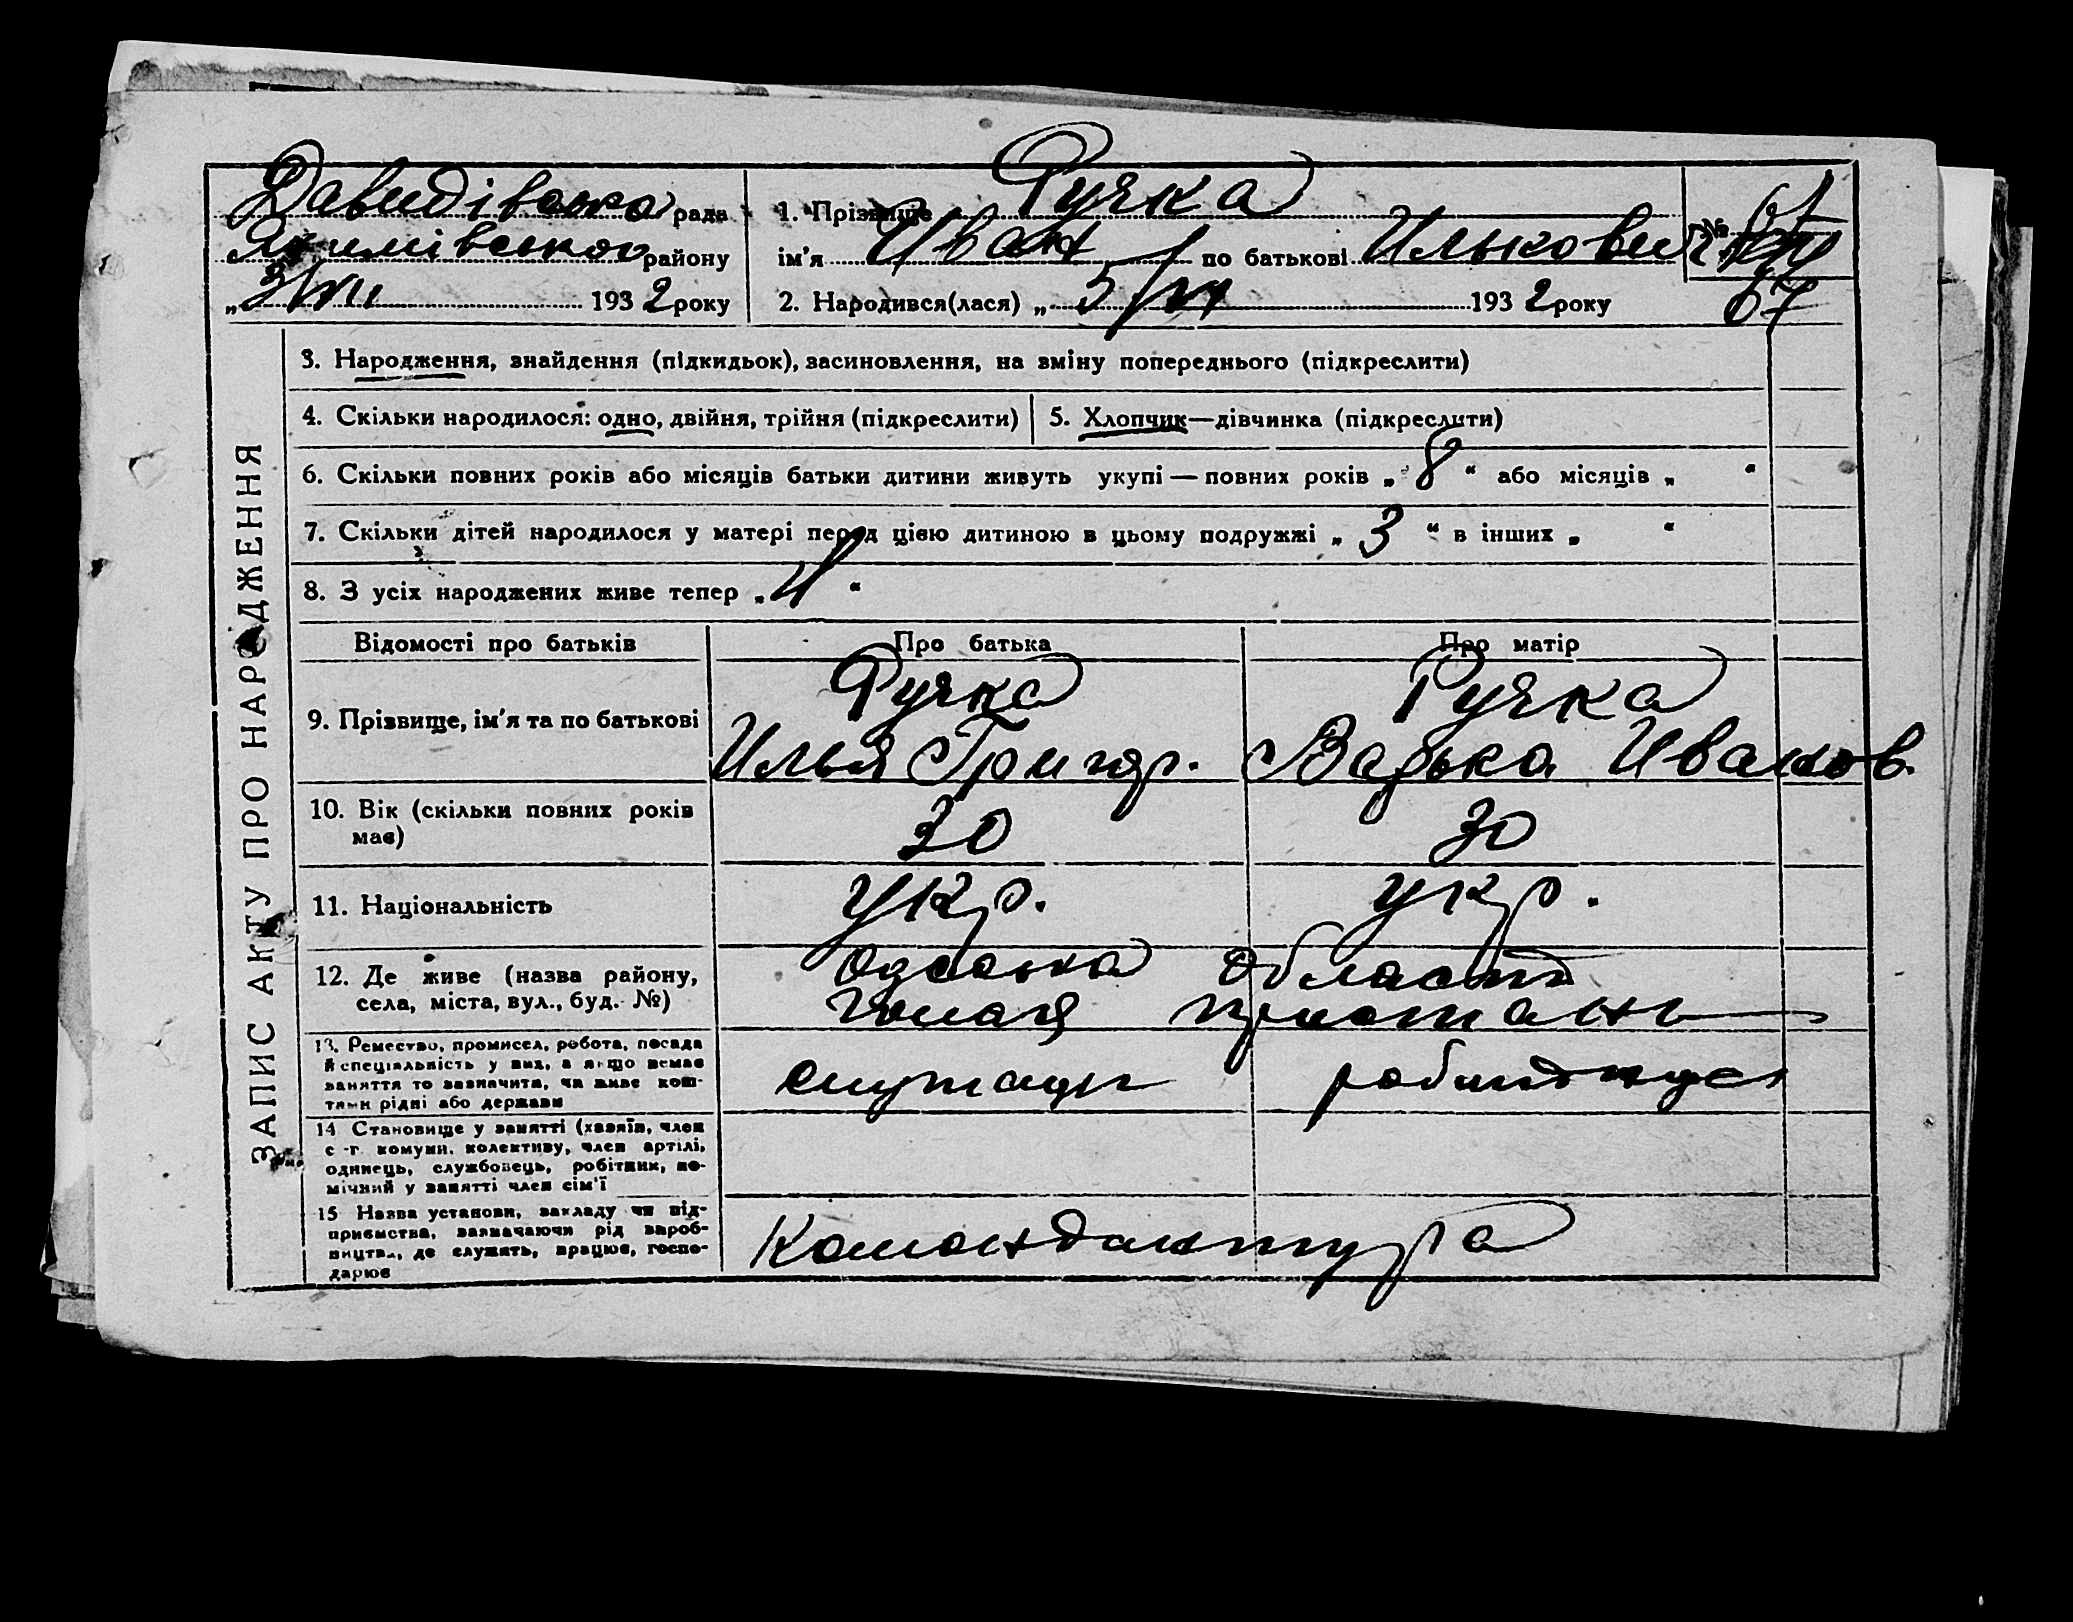 Давидівська рада
Якимівського району
„ 3/VII 1932 року
1. Прізвище Ручка
ім'я Иван по батькові Илькович
2. Народився(лася) „ 5/VI 1932 року
№
67
ЗАПИС АКТУ ПРО НАРОДЖЕННЯ
3. Народження, знайдення (підкидьок), засиновлення, на зміну попереднього (підкреслити)
4. Скільки народилося: одно, двійня, трійня (підкреслити)
5. Хлопчик—дівчинка (підкреслити)
6. Скільки повних років або місяців батьки дитини живуть укупі — повних років „ 8 “ або місяців „ “
7. Скільки дітей народилося у матері перед цією дитиною в цьому подружжі „ 3 “ в інших „ “
8. З усіх народжених живе тепер „ 4 “
Відомості про батьків Про батька Про матір
9. Прізвище, ім'я та по батькові
Ручка
Илья Григор.
Ручка
Варька Иванов.
10. Вік (скільки повних років
має)
30 30
11. Національність укр. укр.
12. Де живе (назва району,
села, міста, вул., буд. №)
Одеська область
Голая пристань
13. Ремество, промисел, робота, посада
й спеціяльність у них, а якщо немає
заняття то зазначити, чи живе кош-
тами рідні або держави
служащи
14 Становище у занятті (хазяїн, член
с.-г. комуни, колективу, член артілі,
одинець, службовець, робітник, по-
мічний у занятті член сім'ї
15 Назва установи, закладу чи під-
приємства, зазначаючи рід вироб-
ництва, де служить, працює, госпо-
дарює
Комондантура